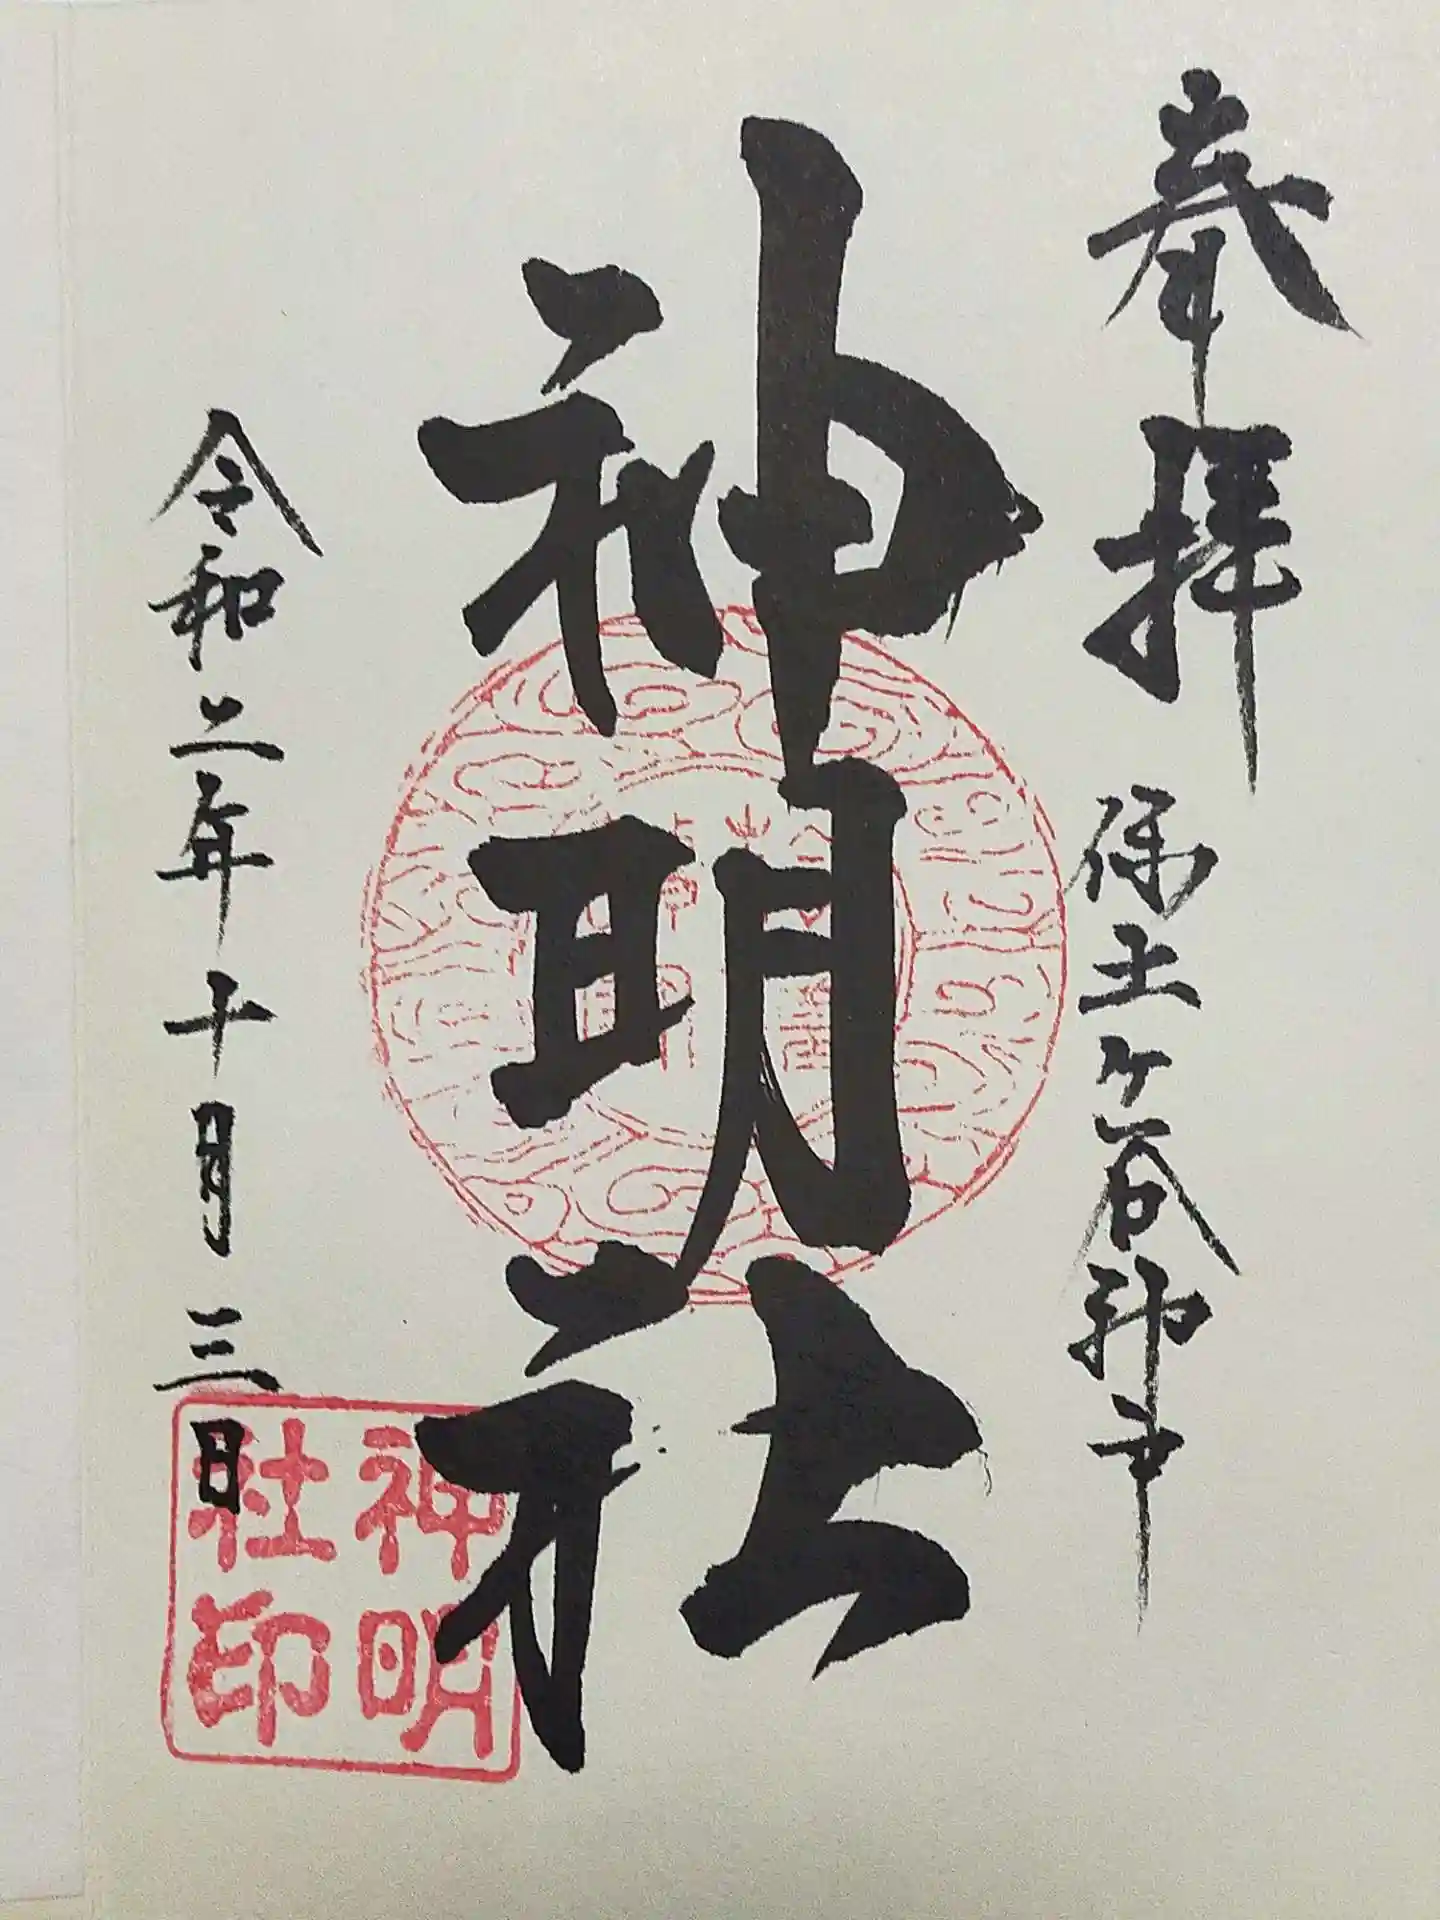 奉拝
保土ヶ谷
神明社
令和二年十月三日
神明
社印